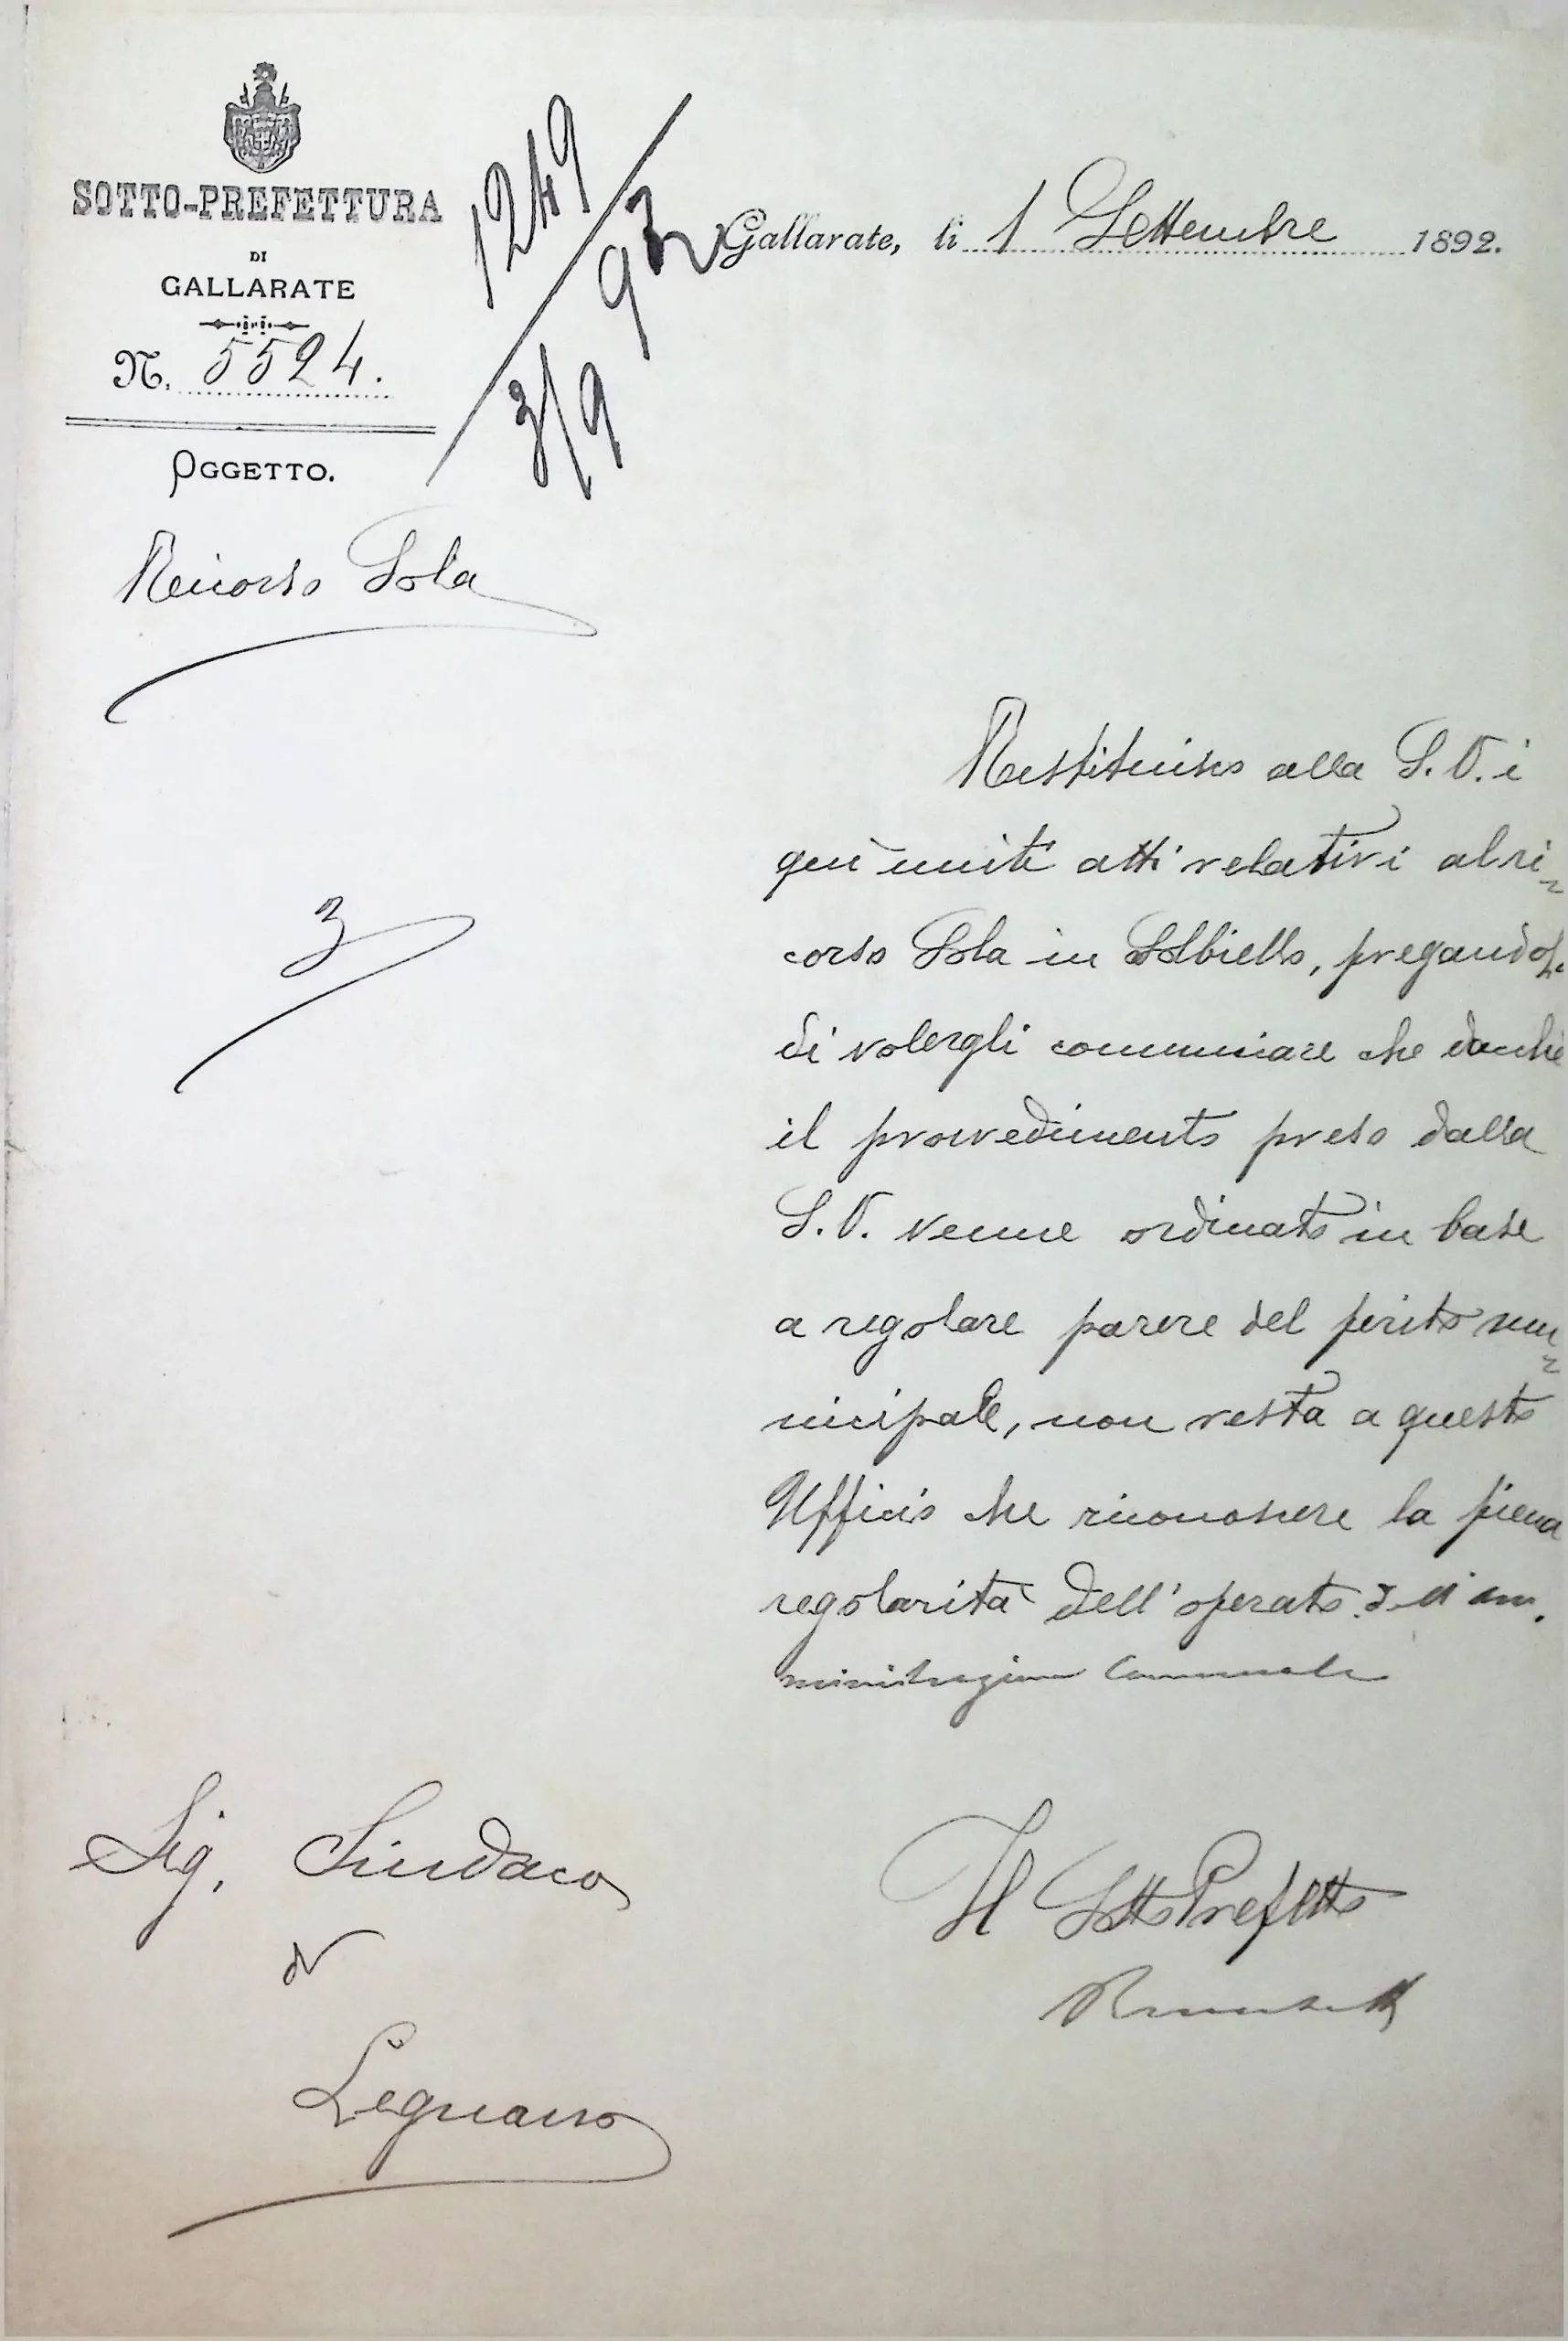 SOTTO-PREFETTURA
DI
GALLARATE
N. 5524.
OGGETTO.
Ricorso Sola
3
1249
3/9 92
Gallarate, li 1 Settembre 1892.
Restituisco alla S.V. i
quì uniti atti relativi al ri=
corso Sola in Solbiello, pregandola
di volergli comunicare che dacchè
il provvedimento preso dalla
S.V. venne ordinato in base
a regolare parere del perito mu=
nicipale, non resta a questo
Ufficio che riconoscere la piena
regolarità dell'operato
ministrazione Comunale
Il Sotto Prefetto
Sig. Sindaco
di
Legnano